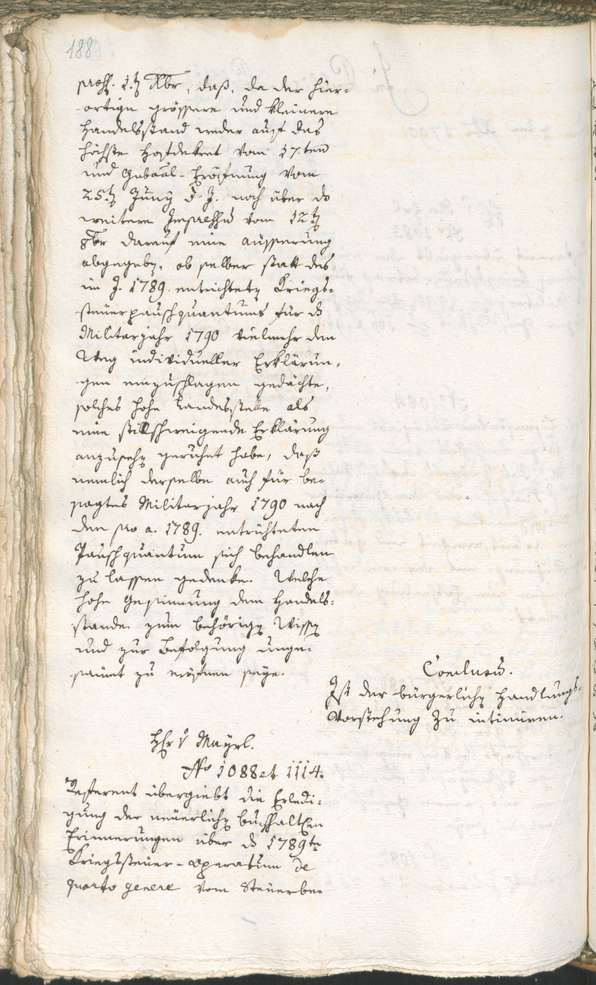 188
praes. 2.t. Xbr, daß, da der hier-
ortige grössere und kleinere
Handelsstand weder auf das
höchste Hofdekret vom 17.ten
und Gubual-Eröfnung vom
25.t. Juny d. J. noch über do
weitere vom 12.t.
8br darauf eine äusserung
abgegeben, ob selber statt des
im J. 1789 entrichteten Kriegs-
steuerpauschquantums für d.
Militarjahr 1790 vielmehr den
Weg individueller Erklärun-
gen einzuschlagen gedächte,
solches hohe Landesstelle als
eine stillschweigende Erklärung
anzusehen geruhet habe, daß
nemlich derselbe auch für be-
sagtes Militarjahr 1790 nach
dem pro a. 1789. entrichteten
Pauschquantum sich behandlen
zu lassen gedenke. Welche
hohe Gesinnung dem Handels-
stande zum behörigen Wissen
und zur Befolgung unge-
säumt zu eröfnen seye.
Conclusum.
Ist der bürgerlichen Handlungs-
Vorstehung zu intimiren.
Hr. v. Mayrl.
No 1088 et 1114.
Referent übergiebt die Erledi-
gung der neuerlichen buchhaltischen
Erinnerungen über d. 1789te
Kriegssteuer-operatum de
quarto genere vom Steuerbe-